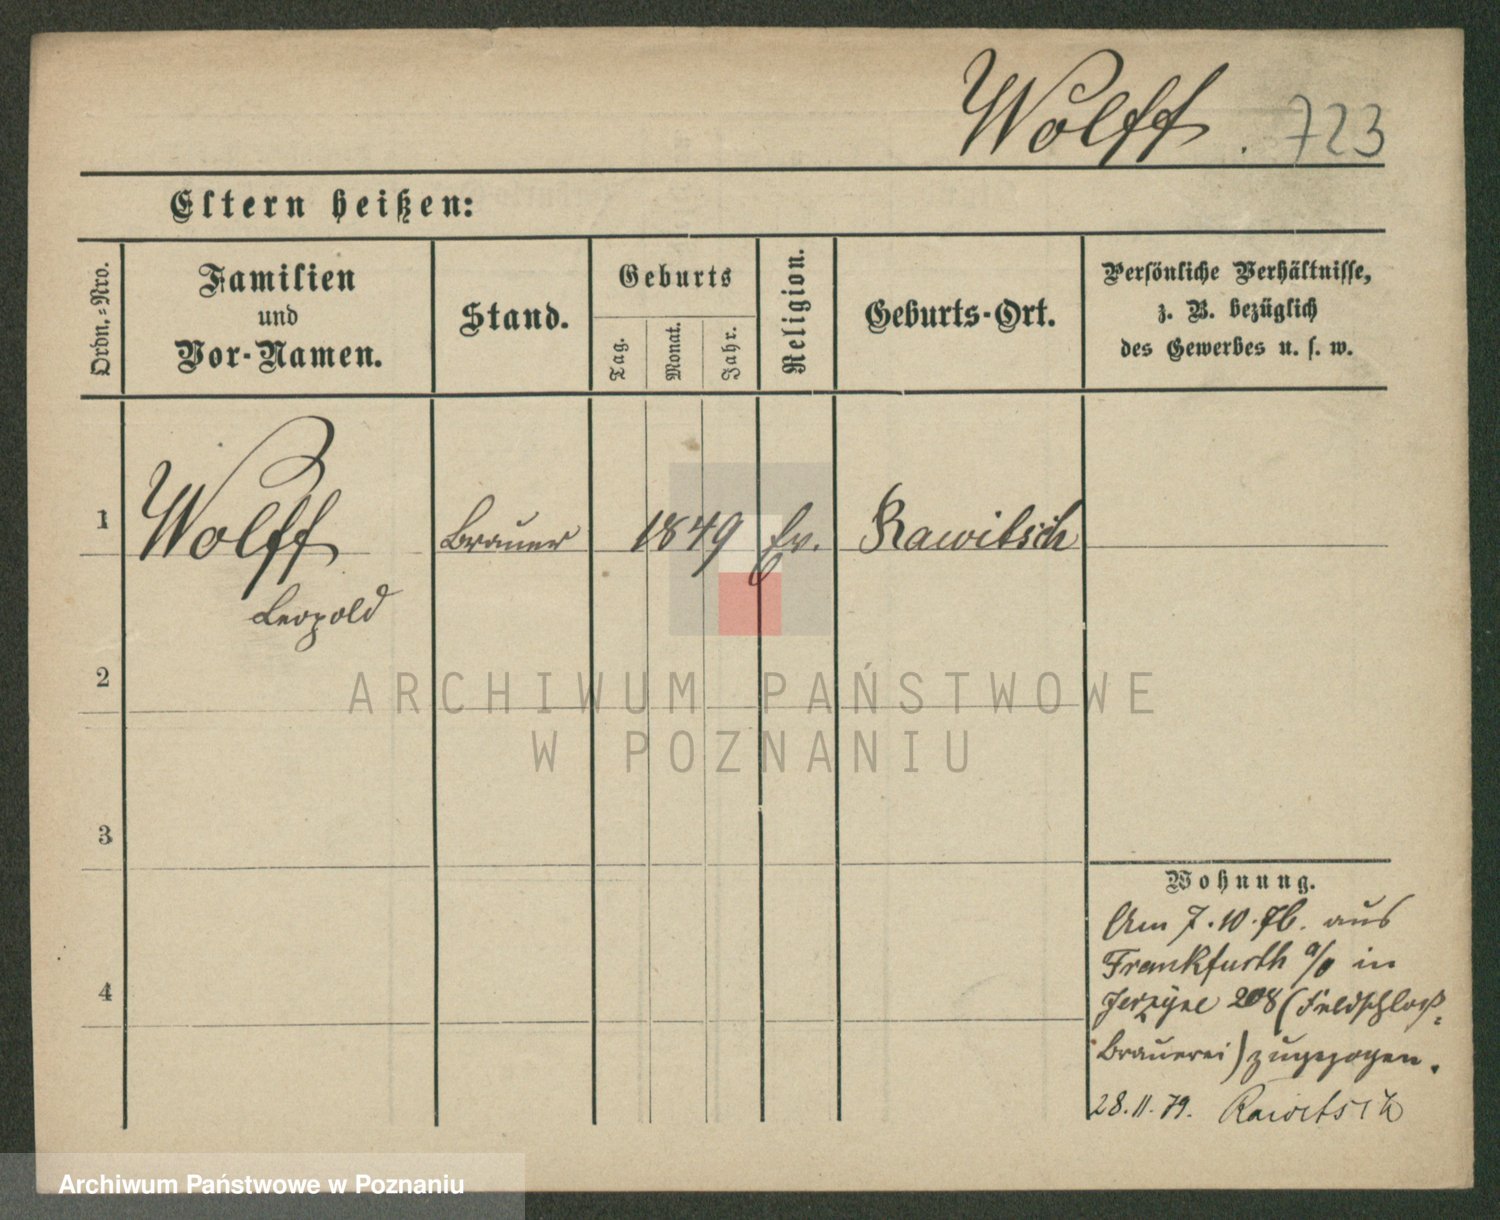 Wolff. 723
Eltern heißen:
Ordn.-Nro.
Familien
und
Vor-Namen.
Stand.
Geburts
Tag.
Monat.
Jahr.
Religion.
Geburts-Ort.
Persönliche Verhältnisse,
z. B. bezüglich
des Gewerbes u. s. w.
1
Wolff
Leopold
Brauer
1849
ev.
Rawitsch
2
3
4
Wohnung.
Am 7.10.76. aus
Frankfurth a/o in
208 (Feldschloß-
Brauerei) zugezogen.
28.11.79. Rawitsch
ARCHIWUM PAŃSTWOWE
W POZNANIU
Archiwum Państwowe w Poznaniu